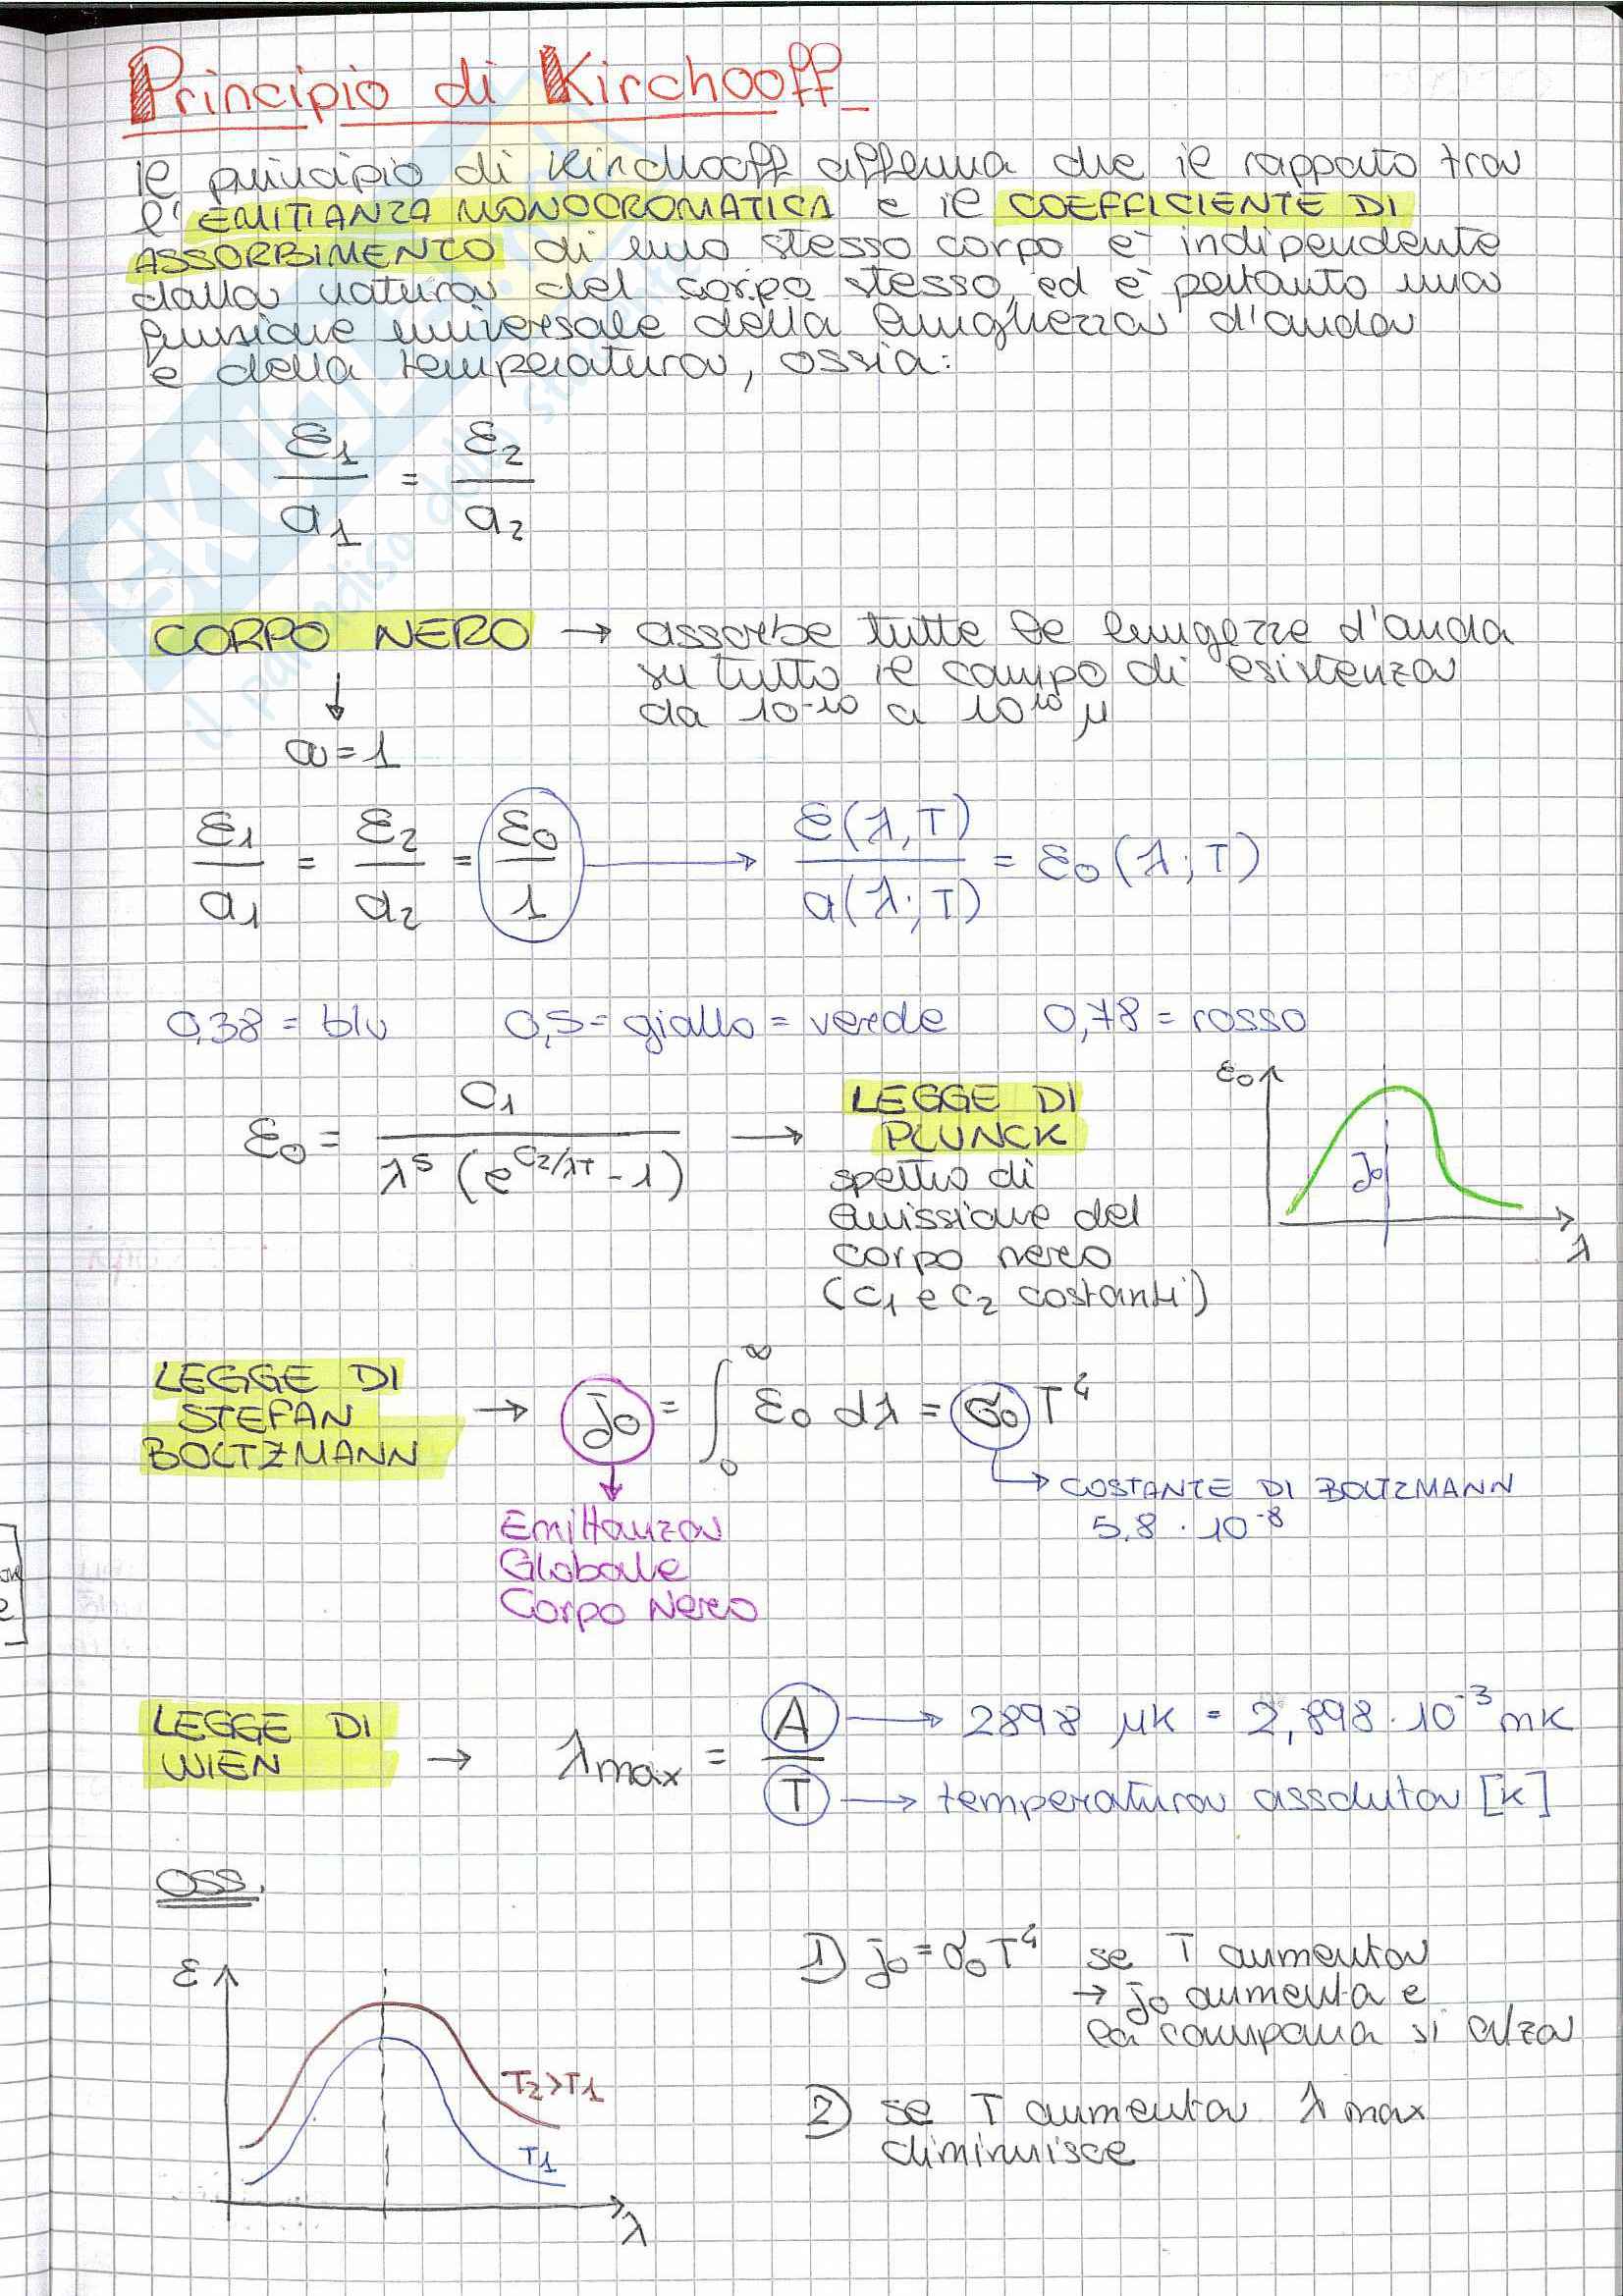 Principio di Kirchooff
Il principio di Kirchooff afferma che il rapporto tra
l'EMITTANZA MONOCROMATICA e il COEFFICIENTE DI
ASSORBIMENTO di uno stesso corpo è indipendente
dalla natura del corpo stesso, ed è pertanto una
funzione universale della lunghezza d'onda
e della temperatura, ossia:
ε1/a1 = ε2/a2
CORPO NERO → assorbe tutte le lungezze d'onda
su tutto il campo di esistenza
da 10^-10 a 10^10 μ
↓
a=1
ε1/a1 = ε2/a2 = ε0/1 → ε(λ,T)/a(λ;T) = ε0(λ;T)
0,38 = blu 0,5 = giallo = verde 0,78 = rosso
ε0 = C1/(λ^5 (e^(C2/λT) - 1)) → LEGGE DI
PLUNCK
spettro di
emissione del
corpo nero
(C1 e C2 costanti)
ε0
j0
λ
LEGGE DI
STEFAN
BOLTZMANN → j0 = ∫0^∞ ε0 dλ = σ0 T^4
COSTANTE DI BOLTZMANN
5,8 · 10^-8
Emittanza
Globale
Corpo Nero
LEGGE DI
WIEN → λmax = A/T
A → 2898 μK = 2,898 · 10^-3 mK
T → temperatura assoluta [K]
OSS.
ε
T2>T1
T1
λ
1) j0 = σ0T^4 se T aumenta
→ j0 aumenta e
la campana si alza
2) se T aumenta λmax
diminuisce
SKUOLA
il paradiso dello studente